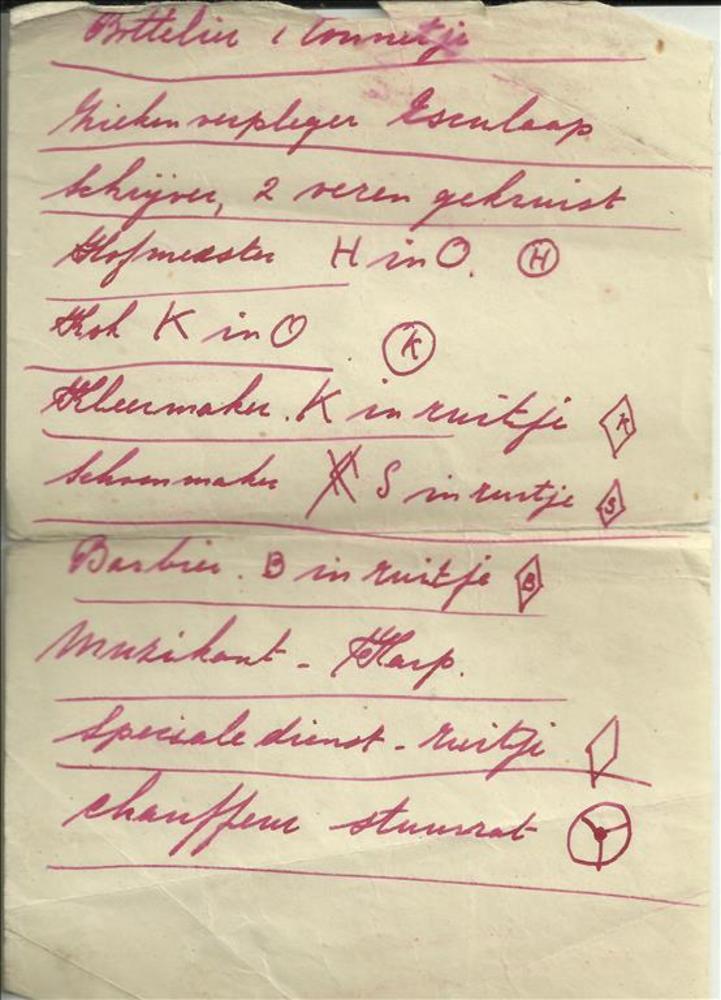 Bottelier 1 tonnetje
Ziekenverpleger Esculaap
Schrijver, 2 veren gekruist
Hofmeester H in O. H
Kok K in O K
Kleermaker. K in ruitje K
Schoenmaker S in ruitje S
Barbier. B in ruitje B
Muzikant - Harp.
Speciale dienst - ruitje
chauffeur stuurrat